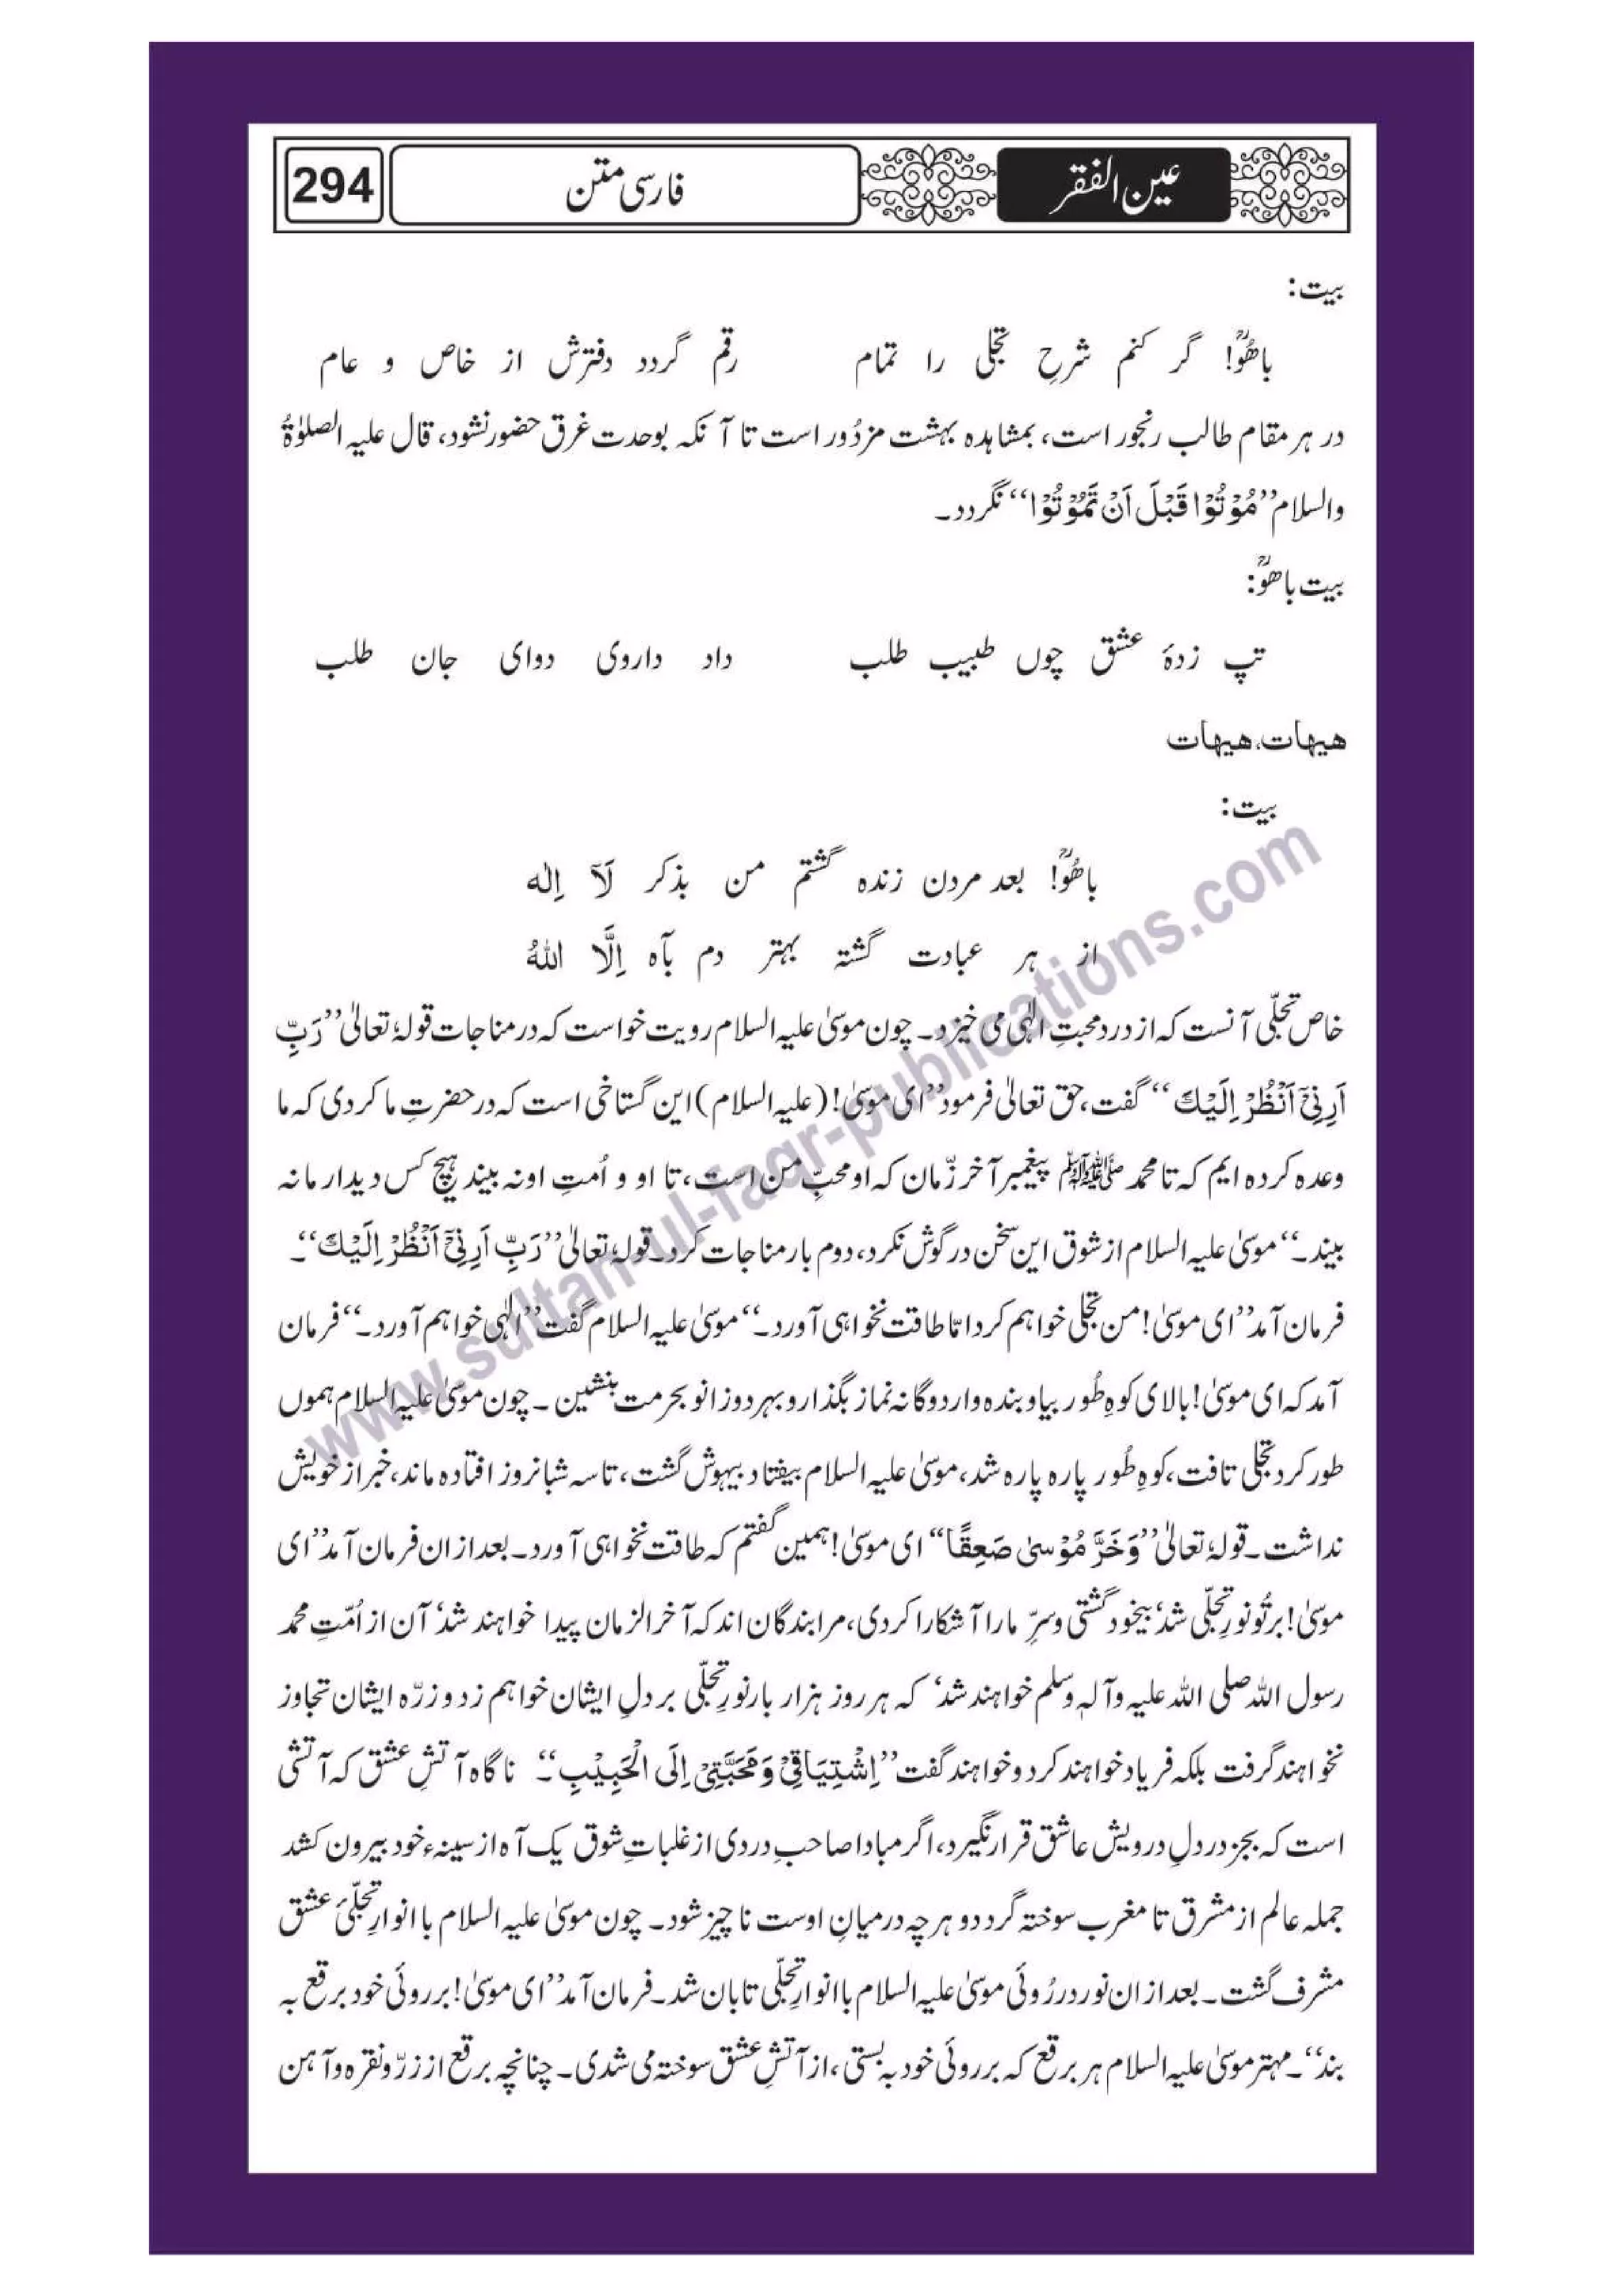 عین الفقر
فارسی متن
294
بیت:
باھُوؒ! گر کنم شرحِ تجلی را تمام رقم گردد دفترش از خاص و عام
در ہر مقام طالب رنجور است، بمشاہدہ بہشت مزدُور است تا آنکہ بوحدت غرق حضور نشود، قال علیہ الصلوٰۃُ
والسلام ’’مُوْتُوْا قَبْلَ اَنْ تَمُوْتُوْا‘‘ نگردد۔
بیت باھوؒ:
تپ زدۂ عشق چوں طبیب طلب داد داروی دوای جان طلب
ھیھات، ھیھات
بیت:
باھُوؒ! بعد مردن زندہ گشتم من بذکر لَآ اِلٰہ
از ہر عبادت گشتہ بہتر دم بآہ اِلَّا اللّٰہُ
خاص تجلّی آنست کہ از درد محبتِ الٰہی می خیزد۔ چون موسیٰ علیہ السلام رویت خواست کہ در مناجات قولہٗ تعالیٰ ’’رَبِّ
اَرِنِیْٓ اَنْظُرْ اِلَیْكَ‘‘ گفت، حق تعالیٰ فرمود ’’ای موسیٰ! (علیہ السلام) این گستاخی است کہ در حضرتِ ما کردی کہ ما
وعدہ کردہ ایم کہ تا محمد ﷺ پیغمبر آخر زّمان کہ او محبِّ من است، تا او و اُمتِ او نہ بیند ہیچ کس دیدار ما نہ
بیند۔‘‘ موسیٰ علیہ السلام از شوق این سخن در گوش نکرد، دوم بار مناجات کرد۔ قولہٗ تعالیٰ ’’رَبِّ اَرِنِیْٓ اَنْظُرْ اِلَیْكَ‘‘۔
فرمان آمد ’’ای موسیٰ! من تجلی خواہم کرد امّا طاقت نخواہی آورد۔‘‘ موسیٰ علیہ السلام گفت ’’الٰہی خواہم آورد۔‘‘ فرمان
آمد کہ ای موسیٰ! بالای کوہِ طُور بیا و بندہ وار دوگانہ نماز بگذار و بہر دو زانو بحرمت بنشین۔ چون موسیٰ علیہ السلام ہموں
طور کرد تجلی تافت، کوہِ طُور پارہ پارہ شد، موسیٰ علیہ السلام بیفتاد بیہوش گشت، تا سہ شبانروز افتادہ ماند، خبر از خویش
نداشت۔ قولہٗ تعالیٰ ’’وَخَرَّ مُوْسیٰ صَعِقًا‘‘ ای موسیٰ! ہمین گفتم کہ طاقت نخواہی آورد۔ بعد ازان فرمان آمد ’’ای
موسیٰ! بر تُو نورِ تجلّی شد، بیخود گشتی و سرِّ ما را آشکارا کردی، مرا بندگان اند کہ آخر الزمان پیدا خواہند شد، آن از اُمّتِ محمد
رسول اللہ صلی اللہ علیہ وآلہٖ وسلم خواہند شد، کہ ہر روز ہزار بار نورِ تجلّی بر دلِ ایشان خواہم زد و زرّہ ایشان تجاوز
نخواہند گرفت بلکہ فریاد خواہند کرد و خواہند گفت ’’اِشْتِیَاقِیْ وَمَحَبَّتِیْ اِلَی الْحَبِیْبِ‘‘۔ ناگاہ آتشِ عشق کہ آتشی
است کہ بجز در دلِ درویش عاشق قرار نگیرد، اگر مبادا صاحبِ دردی از غلباتِ شوق یک آہ از سینہء خود بیرون کشد
جملہ عالم از مشرق تا مغرب سوختہ گردد و ہر چہ درمیانِ اوست ناچیز شود۔ چون موسیٰ علیہ السلام با انوارِ تجلّیٔ عشق
مشرف گشت۔ بعد ازان نور در رُوئی موسیٰ علیہ السلام با انوارِ تجلّی تابان شد۔ فرمان آمد ’’ای موسیٰ! بر روئی خود برقع بہ
بند‘‘۔ مہتر موسیٰ علیہ السلام ہر برقع کہ بر روئی خود بہ بستی، از آتشِ عشق سوختہ می شدی۔ چنانچہ برقع از زرّ و نقرہ و آہن
www.sultan-ul-faqr-publications.com